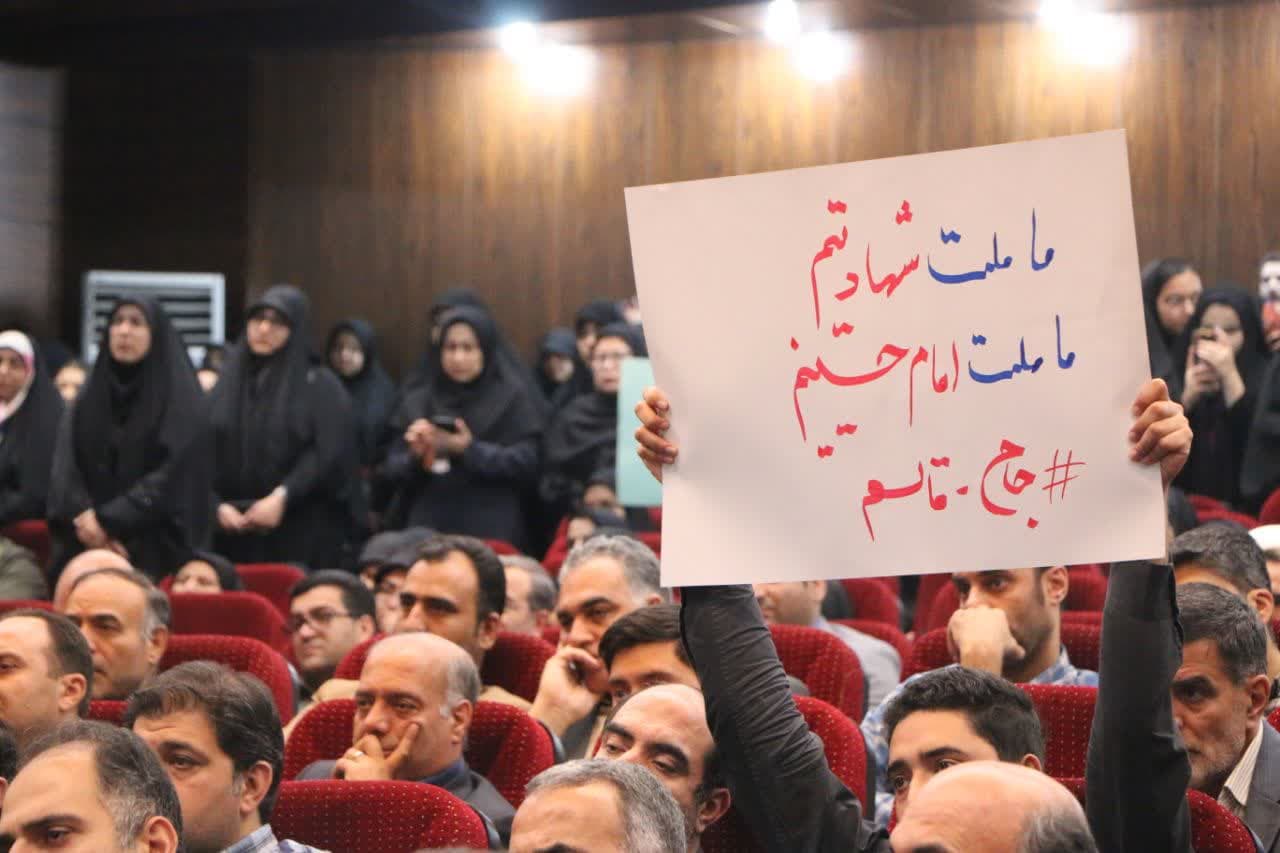 ما ملت شهادتیم
ما ملت امام حسینیم
#حاج-قاسم